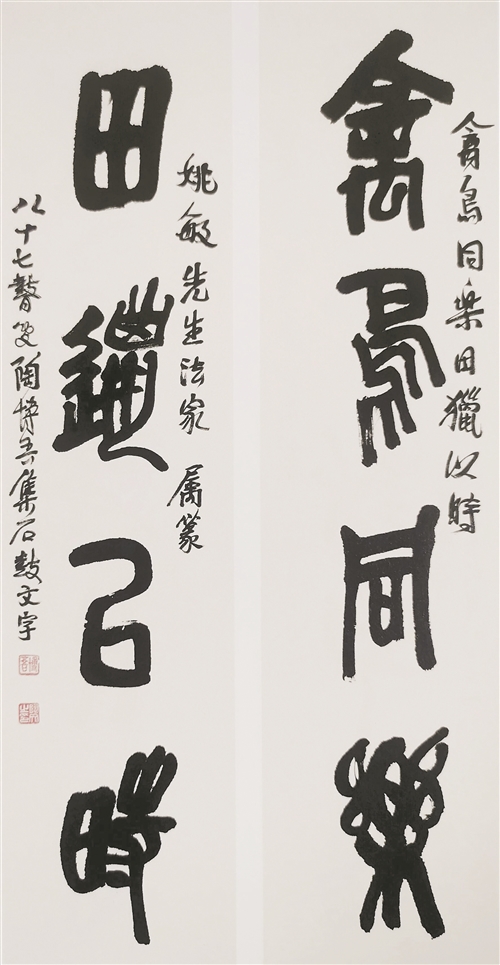 禽鳥同樂田獵以時
禽鳥同樂
姚敏先生法家 属篆
田獵以時
八十七聾叟陶博吾集石鼓文字